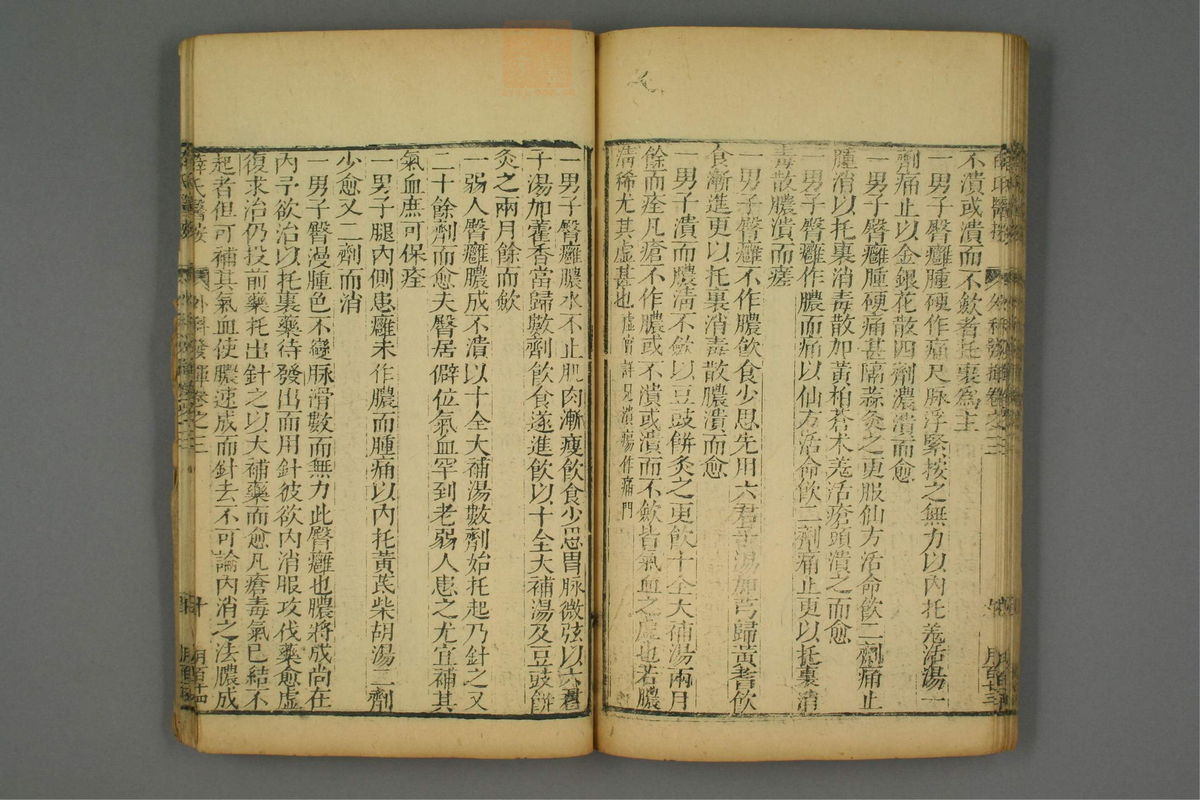 不潰或潰而不斂者托裏為主
一男子臀癰腫硬作痛尺脉浮緊按之無力以內托羗活湯一
劑痛止以金銀花散四劑濃潰而愈
一男子臀癰腫硬痛甚隔蒜灸之更服仙方活命飲二劑痛止
腫消以托裏消毒散加黃柏蒼术羗活瘡頭潰之而愈
一男子臀癰作膿而痛以仙方活命飲二劑痛止更以托裏消
毒散膿潰而瘥
一男子臀癰不作膿飲食少思先用六君子湯加芎歸黃耆飲
食漸進更以托裏消毒散膿潰而愈
一男子潰而膿清不斂以豆豉餅灸之更飲十全大補湯兩月
餘而痊凡瘡不作膿或不潰或潰而不斂皆氣血之虛也若膿
清稀尤其虛甚也虛宵詳見潰瘍作痛門
一男子臀癰膿水不止肌肉漸瘦飲食少思胃脉微弦以六君
子湯加藿香當歸數劑飲食遂進飲以十全大補湯及豆豉餅
灸之兩月餘而斂
一弱人臀癰膿成不潰以十全大補湯數劑始托起乃針之又
二十餘劑而愈夫臀居僻位氣血罕到老弱人患之尤宜補其
氣血庶可保痊
一男子腿內側患癰未作膿而腫痛以內托黃芪柴胡湯二劑
少愈又二劑而消
一男子臀漫腫色不變脉滑數而無力此臀癰也膿將成尚在
內予欲治以托裏藥待發出而用針彼欲內消服攻伐藥愈虛
復求治仍投前藥托出針之以大補藥而愈凡瘡毒氣已結不
起者但可補其氣血使膿速成而針去不可論內消之法膿成
薛氏醫按 外科發揮卷之三 十